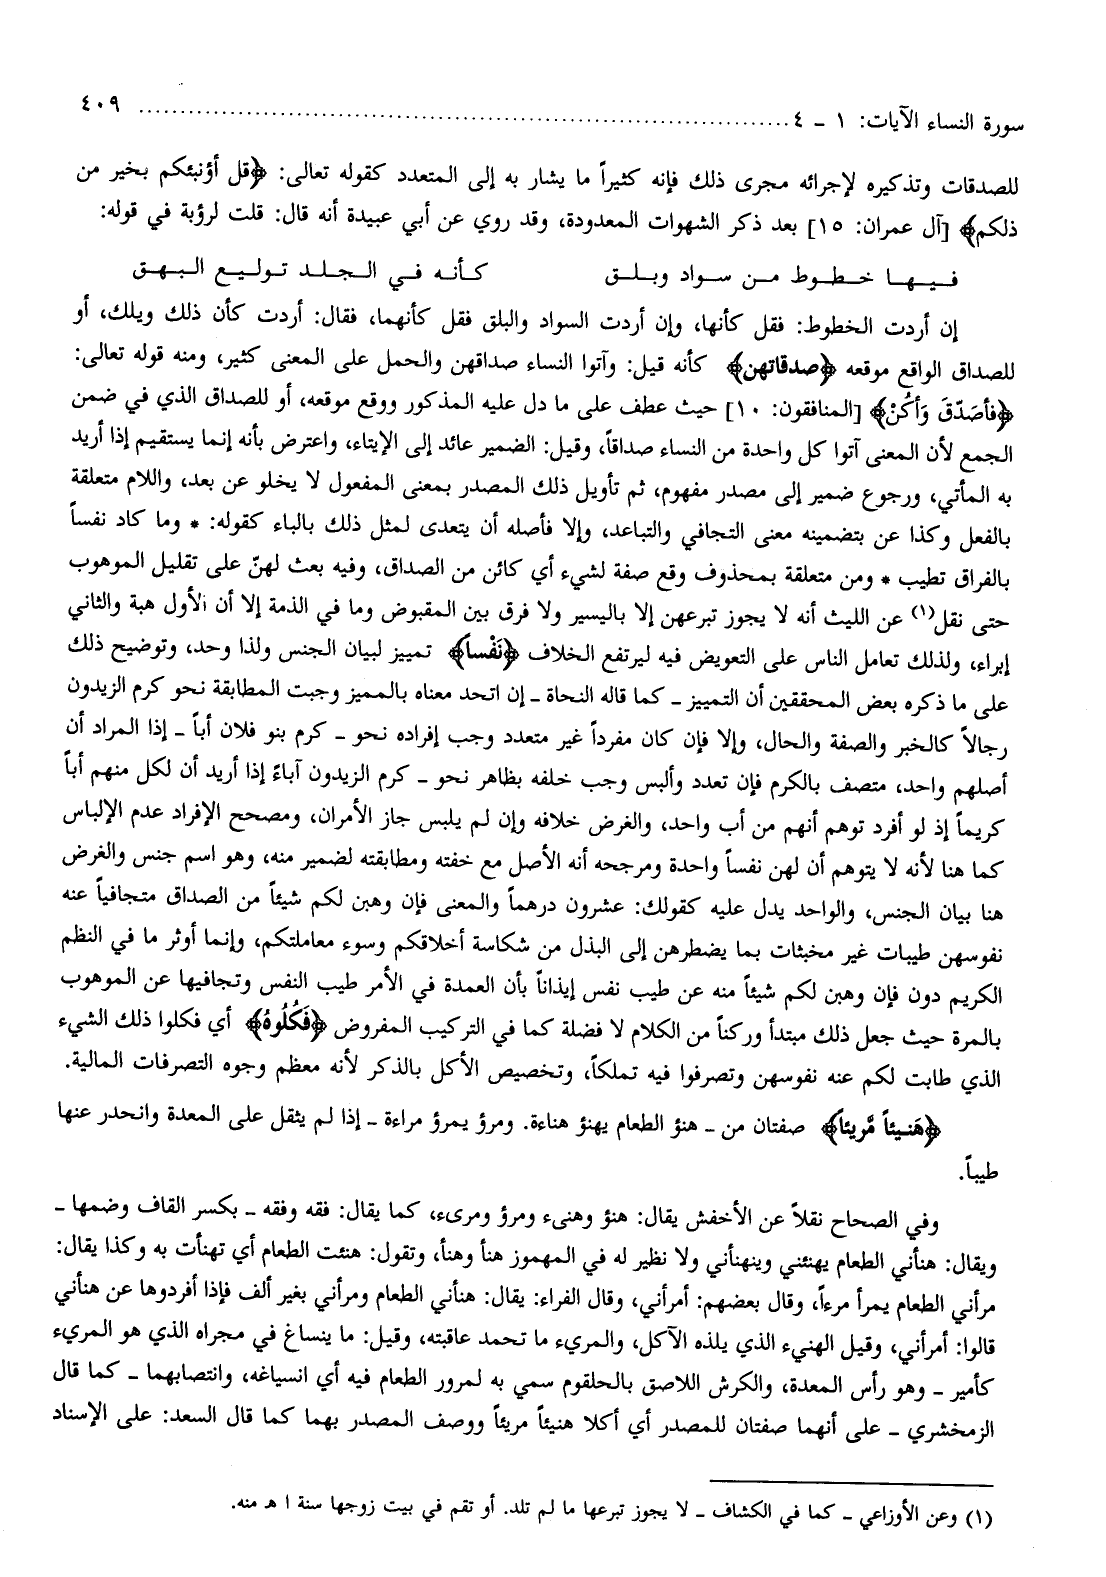 سورة النساء الآيات: ١ - ٤ ........................................................ ٤٠٩
للصدقات وتذكيره لإجرائه مجرى ذلك فإنه كثيراً ما يشار به إلى المتعدد كقوله تعالى: ﴿قل أؤنبئكم بخير من
ذلكم﴾ [آل عمران: ١٥] بعد ذكر الشهوات المعدودة، وقد روي عن أبي عبيدة أنه قال: قلت لرؤبة في قوله:
فيها خطوط من سواد وبلق كأنه في الجلد توليع البهق
إن أردت الخطوط: فقل كأنها، وإن أردت السواد والبلق فقل كأنهما، فقال: أردت كأن ذلك ويلك، أو
للصداق الواقع موقعه ﴿صدقاتهن﴾ كأنه قيل: وآتوا النساء صداقهن والحمل على المعنى كثير، ومنه قوله تعالى:
﴿فأصَدّقَ وَأكُنْ﴾ [المنافقون: ١٠] حيث عطف على ما دل عليه المذكور ووقع موقعه، أو للصداق الذي في ضمن
الجمع لأن المعنى آتوا كل واحدة من النساء صداقاً، وقيل: الضمير عائد إلى الإيتاء، واعترض بأنه إنما يستقيم إذا أريد
به المأتي، ورجوع ضمير إلى مصدر مفهوم، ثم تأويل ذلك المصدر بمعنى المفعول لا يخلو عن بعد، واللام متعلقة
بالفعل وكذا عن بتضمينه معنى التجافي والتباعد، وإلا فأصله أن يتعدى لمثل ذلك بالباء كقوله: * وما كاد نفساً
بالفراق تطيب * ومن متعلقة بمحذوف وقع صفة لشيء أي كائن من الصداق، وفيه بعث لهنّ على تقليل الموهوب
حتى نقل(١) عن الليث أنه لا يجوز تبرعهن إلا باليسير ولا فرق بين المقبوض وما في الذمة إلا أن الأول هبة والثاني
إبراء، ولذلك تعامل الناس على التعويض فيه ليرتفع الخلاف ﴿نَفْساً﴾ تمييز لبيان الجنس ولذا وحد، وتوضيح ذلك
على ما ذكره بعض المحققين أن التمييز - كما قاله النحاة - إن اتحد معناه بالمميز وجبت المطابقة نحو كرم الزيدون
رجالاً كالخبر والصفة والحال، وإلا فإن كان مفرداً غير متعدد وجب إفراده نحو - كرم بنو فلان أباً - إذا المراد أن
أصلهم واحد، متصف بالكرم فإن تعدد وألبس وجب خلفه بظاهر نحو - كرم الزيدون آباءً إذا أريد أن لكل منهم أباً
كريماً إذ لو أفرد توهم أنهم من أب واحد، والغرض خلافه وإن لم يلبس جاز الأمران، ومصحح الإفراد عدم الإلباس
كما هنا لأنه لا يتوهم أن لهن نفساً واحدة ومرجحه أنه الأصل مع خفته ومطابقته لضمير منه، وهو اسم جنس والغرض
هنا بيان الجنس، والواحد يدل عليه كقولك: عشرون درهماً والمعنى فإن وهبن لكم شيئاً من الصداق متجافياً عنه
نفوسهن طيبات غير مخبثات بما يضطرهن إلى البذل من شكاسة أخلاقكم وسوء معاملتكم، وإنما أوثر ما في النظم
الكريم دون فإن وهبن لكم شيئاً منه عن طيب نفس إيذاناً بأن العمدة في الأمر طيب النفس وتجافيها عن الموهوب
بالمرة حيث جعل ذلك مبتدأ وركناً من الكلام لا فضلة كما في التركيب المفروض ﴿فَكُلُوهُ﴾ أي فكلوا ذلك الشيء
الذي طابت لكم عنه نفوسهن وتصرفوا فيه تملكاً، وتخصيص الأكل بالذكر لأنه معظم وجوه التصرفات المالية.
﴿هَنيئاً مَّريئاً﴾ صفتان من - هنؤ الطعام يهنؤ هناءة. ومرؤ يمرؤ مراءة - إذا لم يثقل على المعدة وانحدر عنها
طيباً.
وفي الصحاح نقلاً عن الأخفش يقال: هنؤ وهنىء ومرؤ ومرىء، كما يقال: فقه وفقه - بكسر القاف وضمها -
ويقال: هنأني الطعام يهنئني وينهنأني ولا نظير له في المهموز هنأ وهنأ، وتقول: هنئت الطعام أي تهنأت به وكذا يقال:
مرأني الطعام يمرأ مرءاً، وقال بعضهم: أمرأني، وقال الفراء: يقال: هنأني الطعام ومرأني بغير ألف فإذا أفردوها عن هنأني
قالوا: أمرأني، وقيل الهنيء الذي يلذه الآكل، والمريء ما تحمد عاقبته، وقيل: ما ينساغ في مجراه الذي هو المريء
كأمير - وهو رأس المعدة، والكرش اللاصق بالحلقوم سمي به لمرور الطعام فيه أي انسياغه، وانتصابهما - كما قال
الزمخشري - على أنهما صفتان للمصدر أي أكلا هنيئاً مريئاً ووصف المصدر بهما كما قال السعد: على الإسناد
(١) وعن الأوزاعي - كما في الكشاف - لا يجوز تبرعها ما لم تلد. أو تقم في بيت زوجها سنة ا هـ منه.